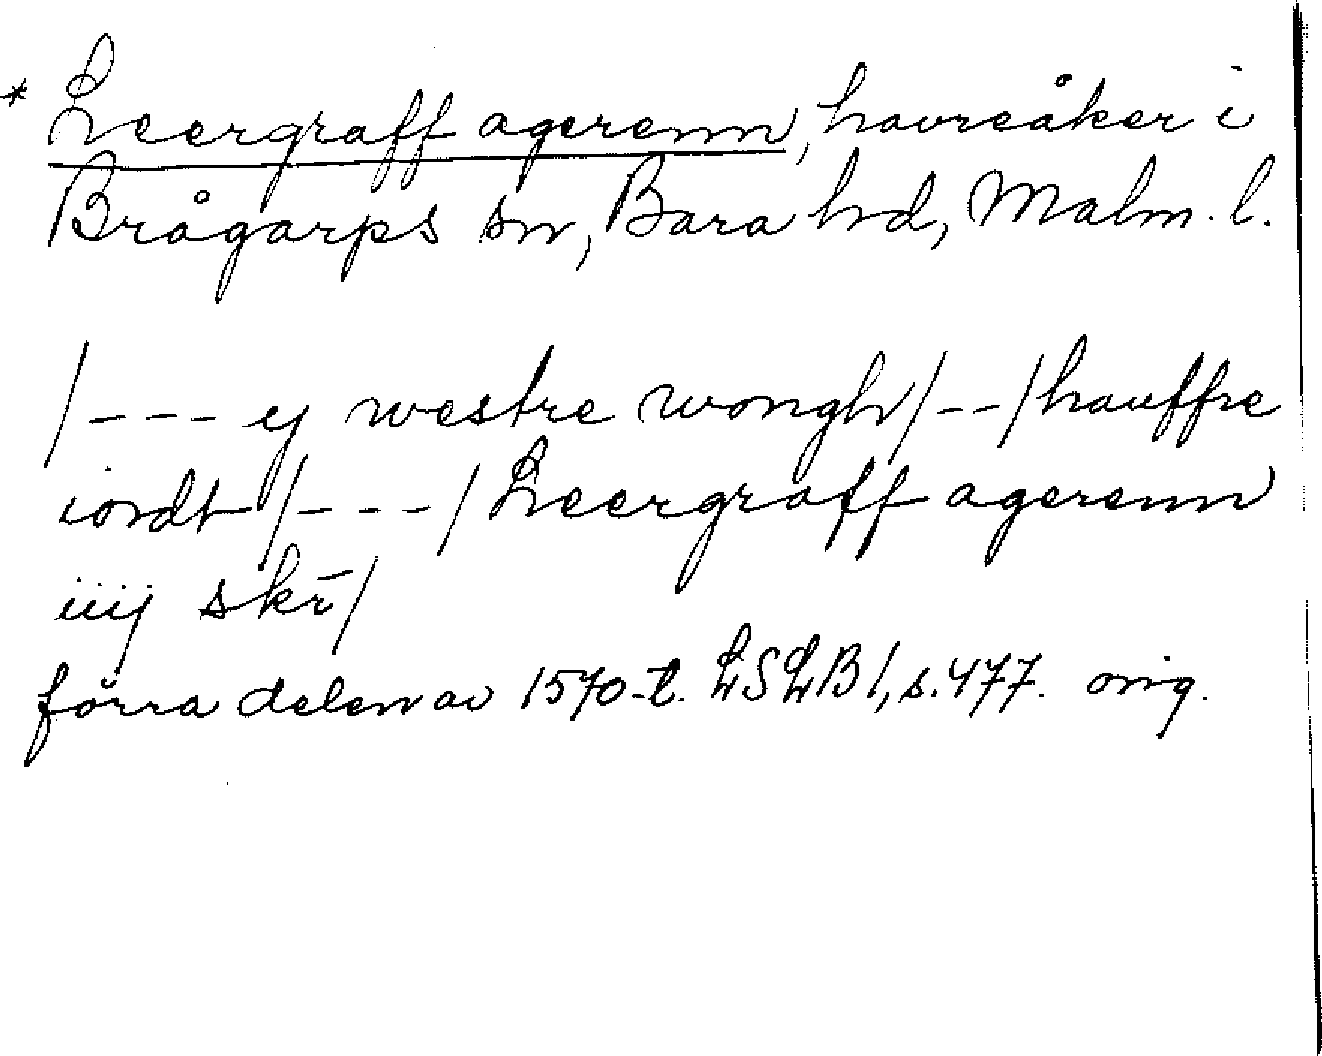 * Leergraff agerenn, havreåker i
Brågarps sn, Bara hd, Malm. l.
/--- ij westre wongh/--/hauffre
iordt/---/Leergraff agerenn
iiij skr̄/
förra delen av 1570-t. LSLB I, s. 477. orig.